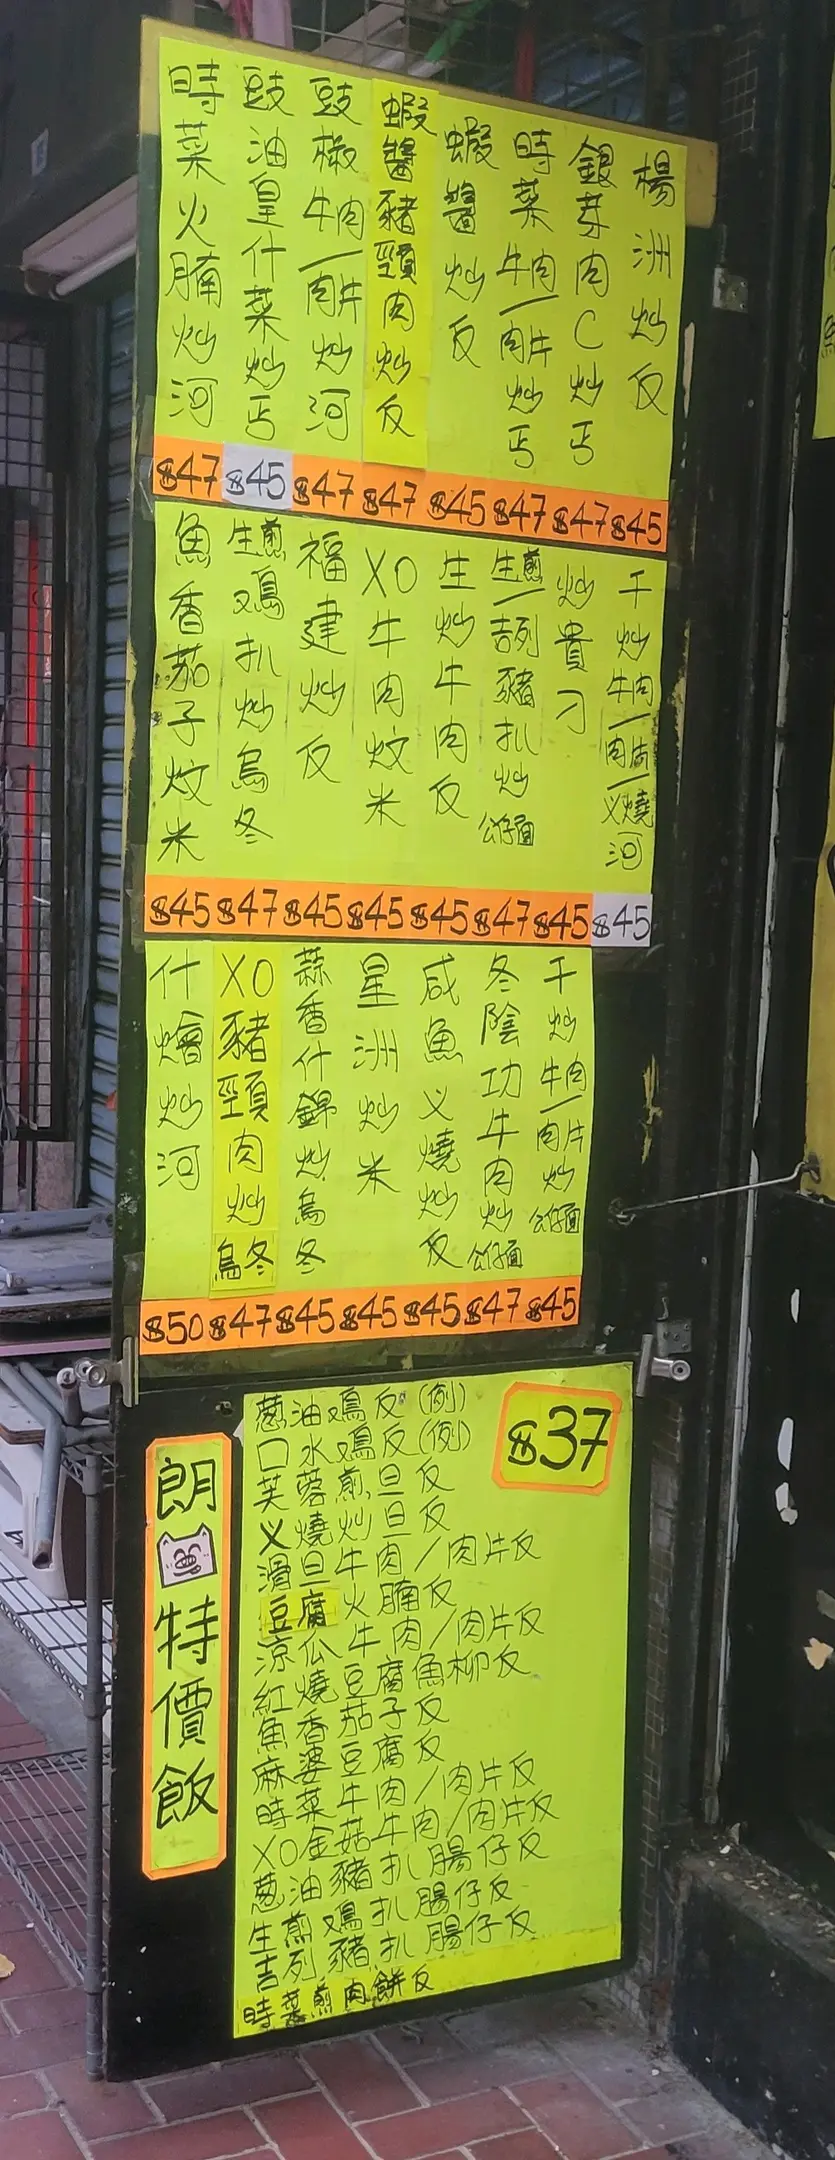 楊洲炒反
銀芽肉C炒丐
時菜牛肉/肉片炒丐
蝦醬炒反
蝦醬豬頸肉炒反
豉椒牛肉/肉片炒河
豉油皇什菜炒丐
時菜火腩炒河
$47 $45 $47 $47 $45 $47 $47 $45
干炒牛肉/肉片/义燒河
炒貴刁
生煎/吉列豬扒炒公仔面
生炒牛肉反
XO牛肉炆米
福建炒反
生煎鳮扒炒烏冬
魚香茄子炆米
$45 $47 $45 $45 $45 $47 $45 $45
干炒牛肉/肉片炒公仔面
冬陰功牛肉炒公仔面
咸魚义燒炒反
星洲炒米
蒜香什錦炒烏冬
XO豬頸肉炒烏冬
什燴炒河
$50 $47 $45 $45 $45 $47 $45
朗
特價飯
$37
葱油鳮反(例)
口水鳮反(例)
芙蓉煎旦反
义燒炒旦反
滑旦牛肉/肉片反
豆腐火腩反
凉瓜牛肉/肉片反
紅燒豆腐魚柳反
魚香茄子反
麻婆豆腐反
時菜牛肉/肉片反
XO金菇牛肉/肉片反
葱油豬扒腸仔反
生煎鳮扒腸仔反
吉列豬扒腸仔反
時菜煎肉餅反